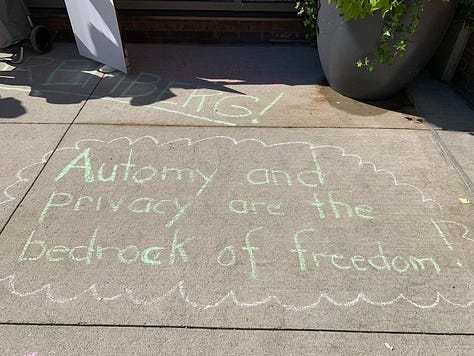 Automy and
privacy are the
bedrock of freedom!